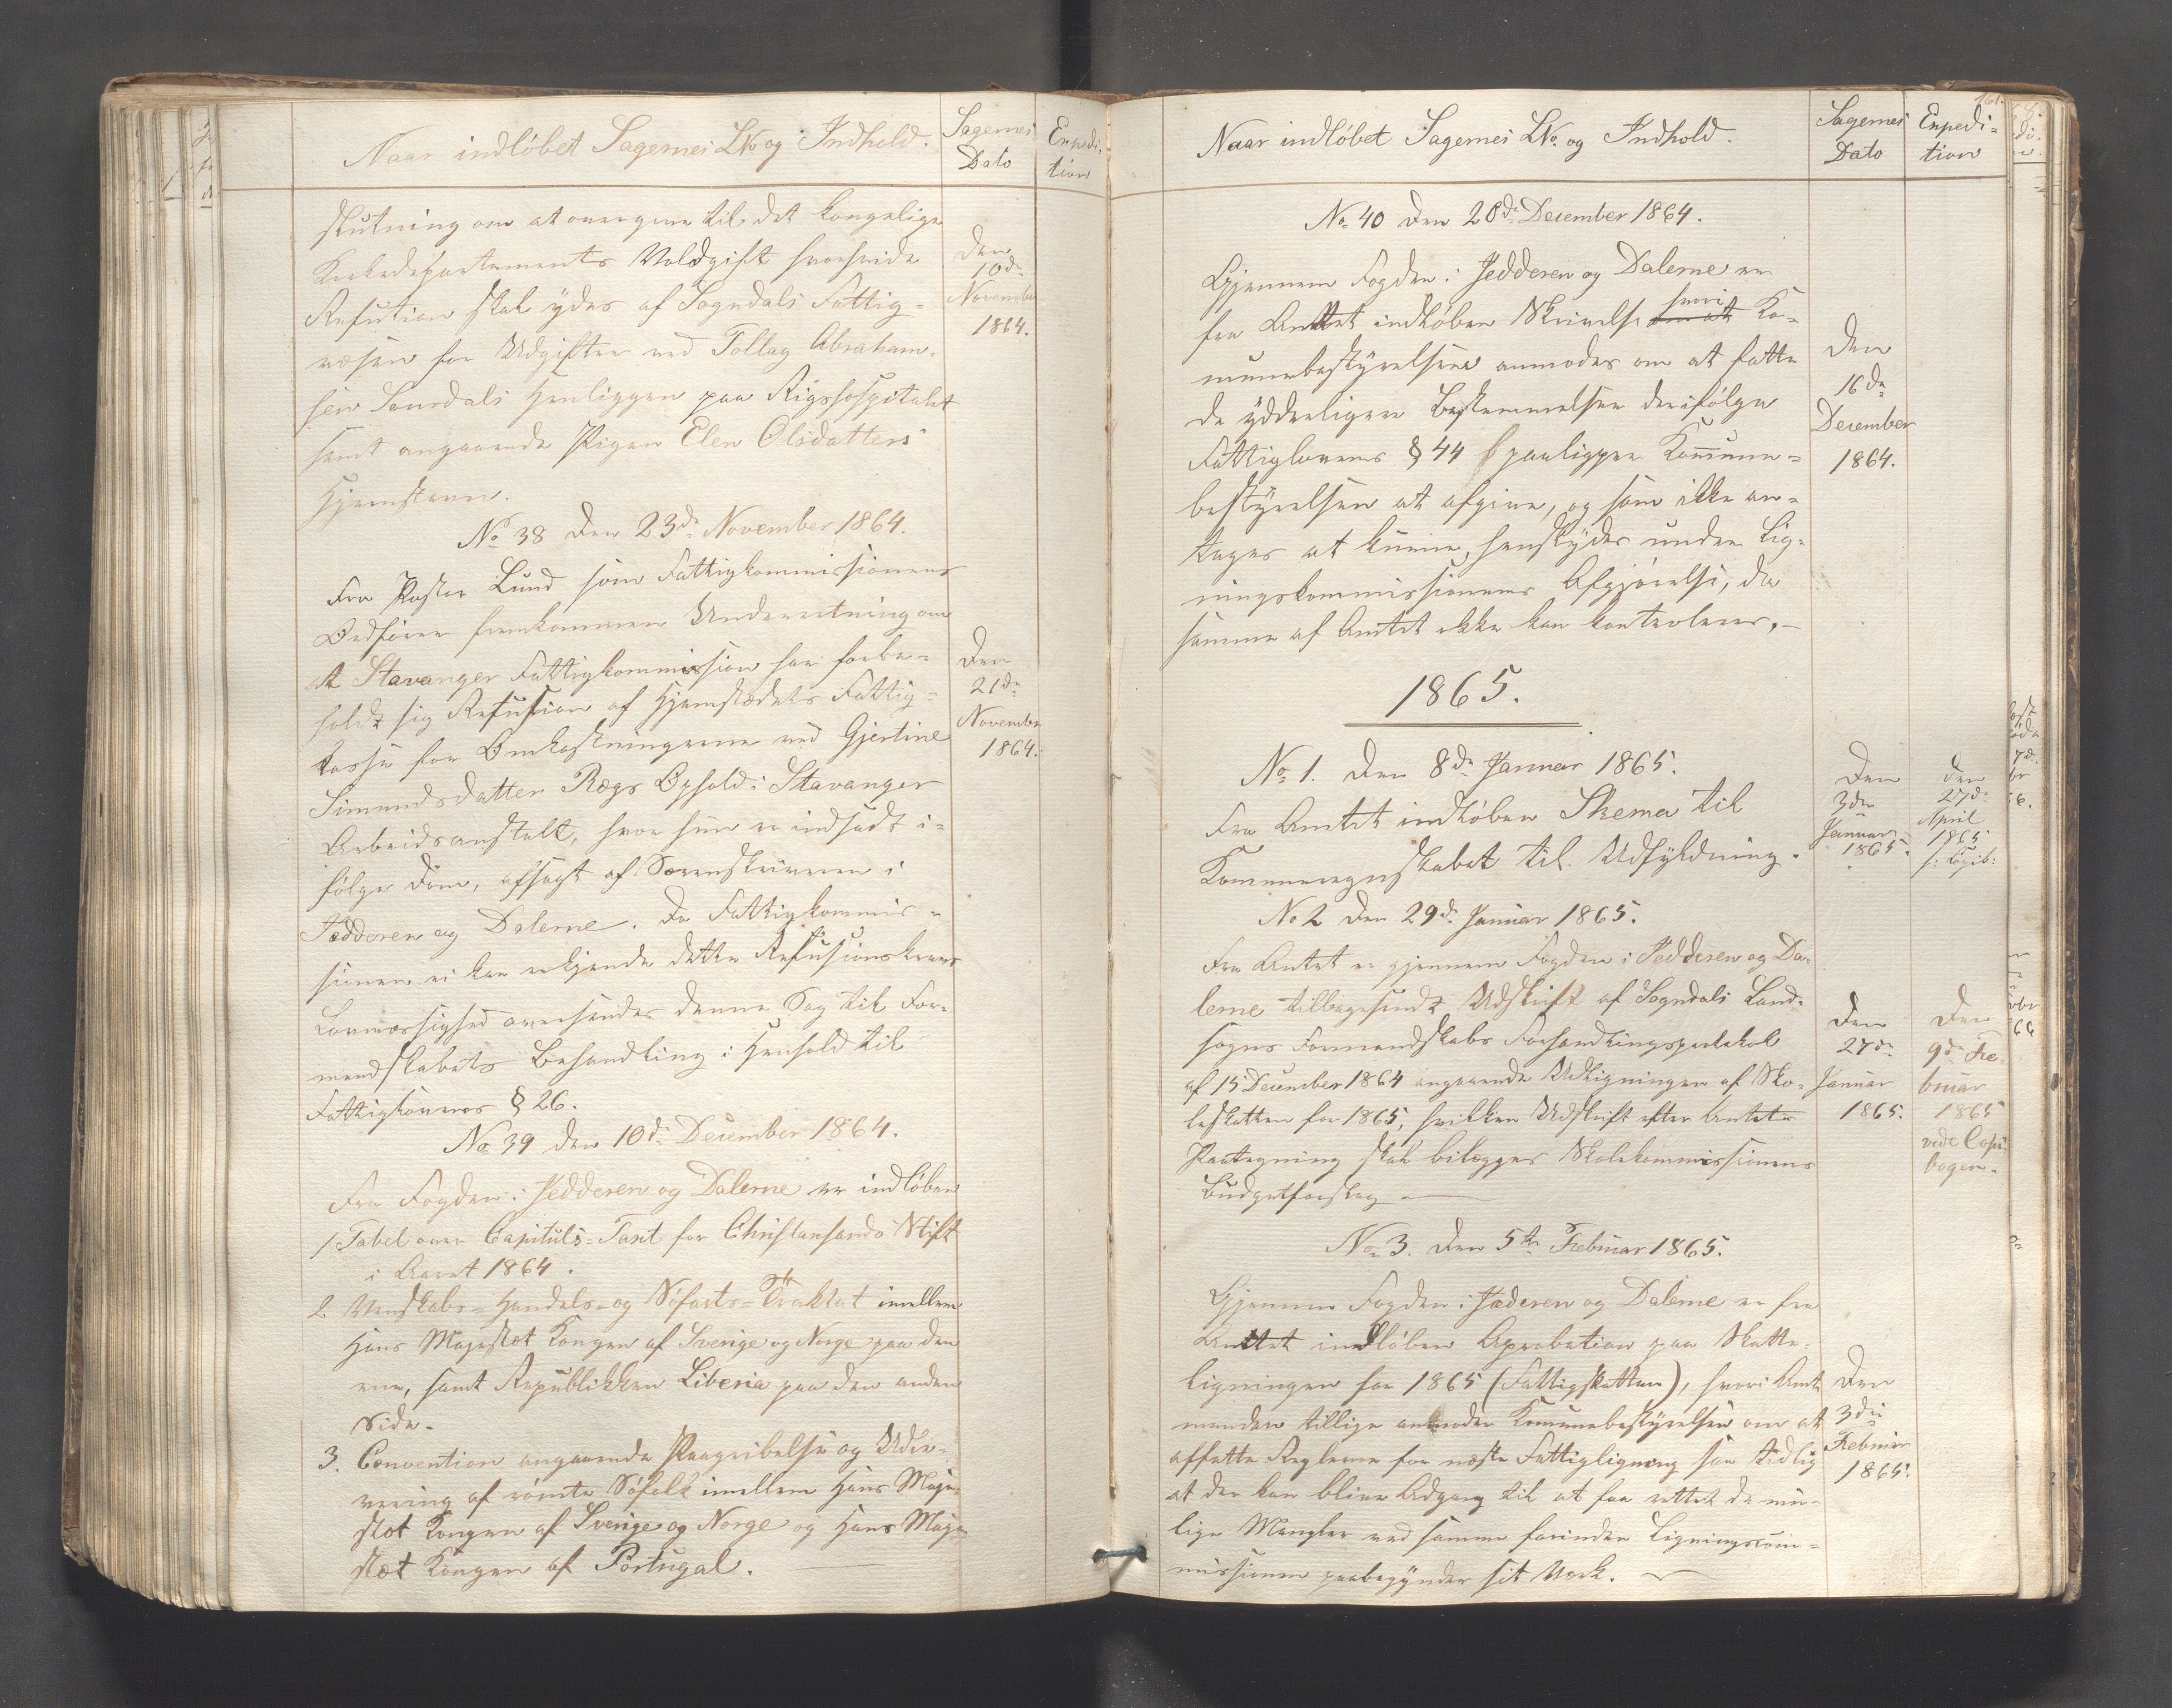 Naar indløbet Sagernes LNo og Indhold.
Sagernes Dato
Expedition
slutning om at overgive til det kongelige
Kirkedepartements Voldgift hvorvidt
Refution skal ydes af Sogndals Fattig-
væsen for Udgifter ved Tollag Abraham-
sen Løvsdals Henliggen paa Rigshospitalet
samt angaaende Pigen Elen Olsdatters
Hjemstavn.
Den
10de
November
1864.
No 38 Den 23de November 1864.
Fra Pastor Lund som Fattigkommissionens
Ordfører fremkommen Underretning om
at Stavanger Fattigkommission har forbe-
holdt sig Refusion af Hjemstedets Fattig-
kasse for Omkostningerne ved Gjertine
Simundsdatter Rægs Ophold i Stavanger
Arbeidsanstalt, hvor hun er indsadt i-
følge Dom, afsagt af Sorenskriveren i
Jædderen og Dalerne. Da Fattigkommis-
sionen ei kan erkjende dette Refusionskravs
Lovmæssighed oversendes denne Sag til For-
mandskabets Behandling i Henhold til
Fattiglovens § 26.
Den
21de
November
1864.
No 39 den 10de December 1864.
Fra Fogden i Jedderen og Dalerne er indløben
1. Tabel over Capituls-Taxt for Christiansands Stift
i Aaret 1864.
2. Venskabs- Handels- og Søfarts-Traktat imellem
Hans Majestæt Kongen af Sverige og Norge paa den
ene, samt Republikken Liberia paa den anden
Side.
3. Convention angaaende Paagribelse og Udle-
vering af rømte Søfolk imellem Hans Maje-
stæt Kongen af Sverige og Norge og Hans Maje-
stæt Kongen af Portugal.
161.
Naar indløbet Sagernes LNo. og Indhold.
Sagernes Dato
Expedi-
tion
No 40 Den 28de December 1864.
Gjennem Fogden i Jedderen og Dalerne er
fra Amtet indløben Skrivelse om at hvori Ko-
munebestyrelsen anmodes om at fatte
de ydderligere Bestemmelser der ifølge
Fattiglovens § 44 paaligger Kommune-
bestyrelsen at afgive, og som ikke an-
tages at kunne henskydes under Lig-
ningskommissionens Afgjørelse, da
samme af Amtet ikke kan kontroleres.
Den
16de
December
1864.
1865.
No 1. Den 8de Januar 1865.
Fra Amtet indløben Skema til
Kommuneregnskabet til Udfyldning.
Den
3die
Januar
1865.
den
27de
April
1865
No 2 Den 29de Januar 1865.
Fra Amtet er gjennem Fogden i Jedderen og Da-
lerne tilbagesendt Udskrift af Sogndals Land-
sogns Formandskabs Forhandlingsprotokol
af 15 December 1864 angaaende Udligningen af Sko-
leskatten for 1865, hvilken Udskrift efter Amtets
Paategning skal bilægges Skolekommissionens
Budgetforslag
Den
27de
Januar
1865.
Den
9de Fe-
bruar
1865
vide Copi-
bogen.
No 3. Den 5te Februar 1865.
Gjennem Fogden i Jæderen og Dalerne er fra
Amtet indløben Aprobation paa Skatte-
ligningen for 1865 (Fattigskatten), hvori Amt-
manden tillige anmoder Komunebestyrelsen om at
affatte Reglerne for næste Fattigligning saa tidlig
at der kan blive Adgang til at faa rettet de mu-
lige Mangler ved samme forinden Ligningscom-
missionen paabegynder sit Værk.
Den
3die
Februar
1865.